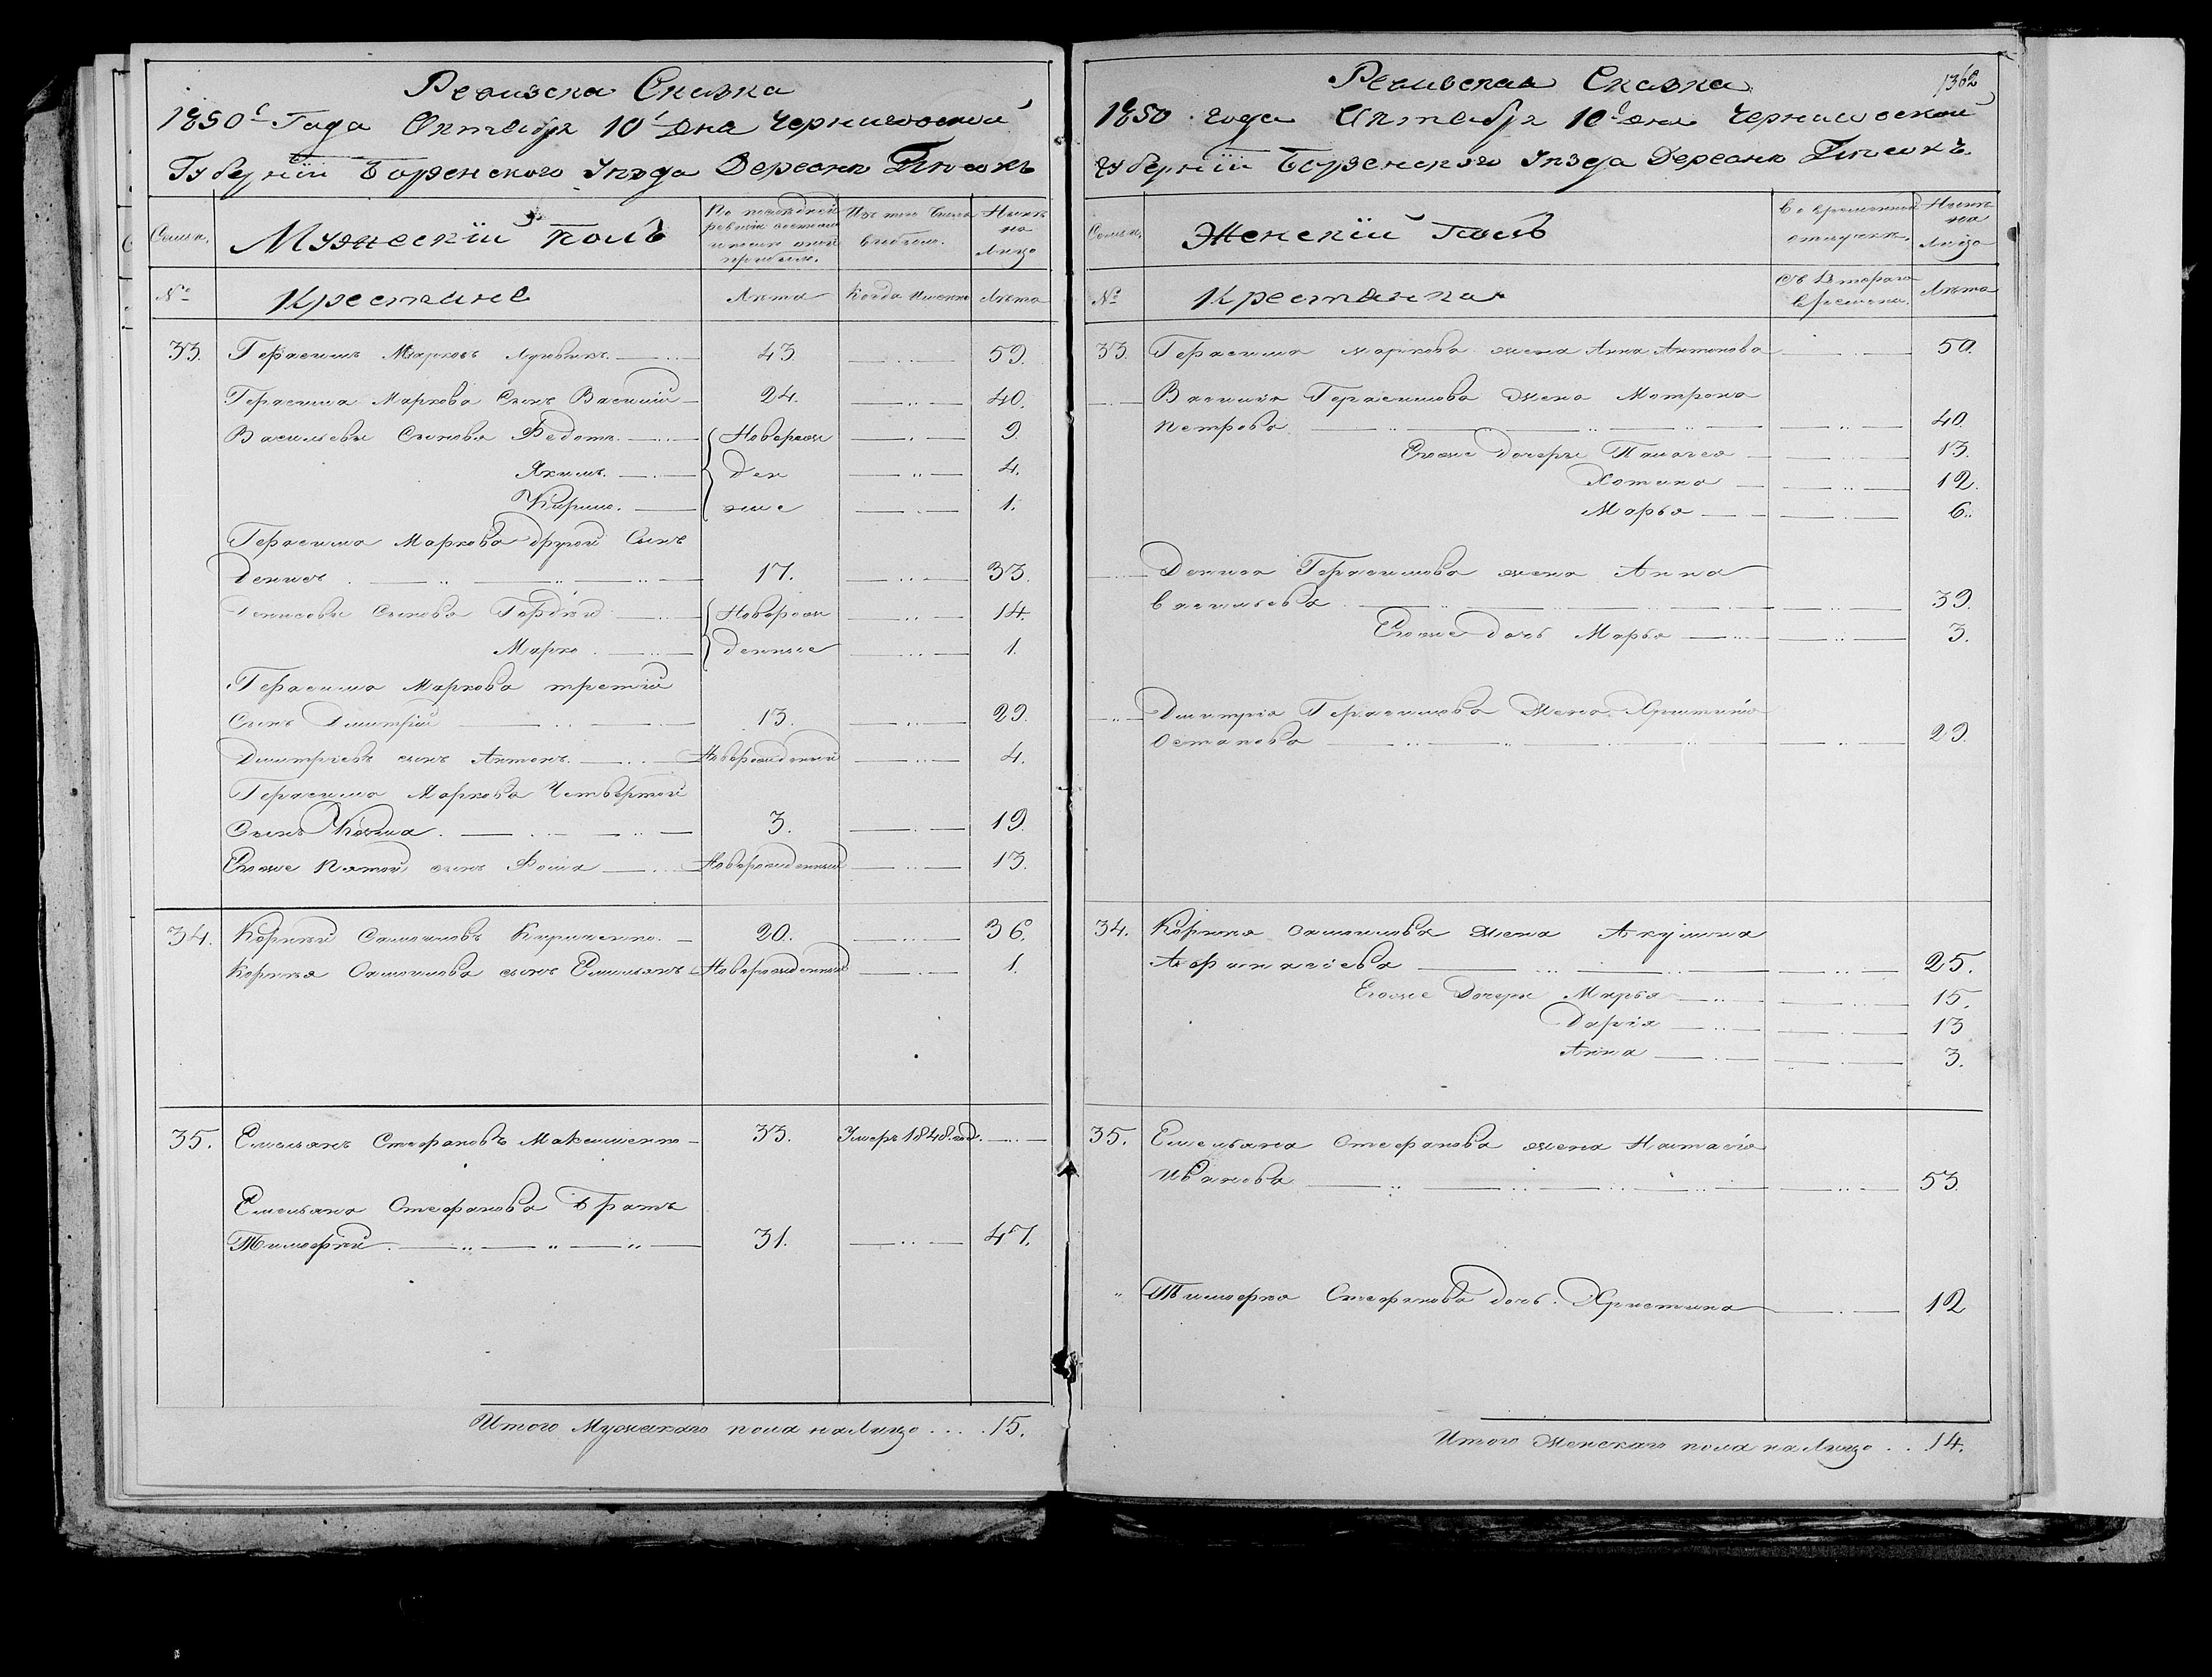 Ревизска Сказка
1850го Года Октября 10го Дня Черниговской
Губернїи Борзенского Уезда Деревни Песокъ
Семьи.
Мужескій полъ
По последней ревизіи состояло и после оной прибыло.
Изъ того числа выбыло.
Ныне на лицо
№
Крестьяне
Лета
Когда именно
Лета
33. Герасимъ Марковъ 43. 59.
Герасима Маркова Сынъ Василий 24. 40.
Васильевы Сыновья Федотъ. Новорож 9.
Якимъ. ден 4.
Кирило. ные 1.
Герасима Маркова другой Сынъ
Денисъ 17. 33.
Денисовы Сыновья Гордѣй Новорож 14.
Марко. денные 1.
Герасима Маркова третій
Сынъ Дмитрій 13. 29.
Дмитріевъ сынъ Антонъ. Новорожденный 4.
Герасима Маркова Четвертой
Сынъ Козма. 3. 19.
Егоже Пятой сынъ Фома Новорожденный 13.
34. Корнѣй Самойловъ Кириченко. 20. 36.
Корнѣя Самойлова сынъ Емельянъ Новорожденный 1.
35. Емельянъ Стефановъ Максименко 33. Умеръ 1848. год.
Емельяна Стефанова Братъ
Тимофѣй. 31. 47.
Итого Мужескаго пола на Лицо . . . . 15.
1362
Ревизская Сказка
1850 года Октября 10го дня Черниговской
губернїи Борзенского Уезда Деревни Песокъ.
Семьи.
Женскїй Полъ
Во временной отлучке.
Ныне на лицо
№
Крестьянка
Съ Котораго времени.
Лета
33. Герасима Маркова жена Анна Антонова 50.
Василія Герасимова Жена Мотрона
Петрова 40.
Егоже Дочери 13.
12.
Марья 6.
Дениса Герасимова жена Анна
Васильева 39.
Егоже дочь Марья 3.
Дмитрія Герасимова Жена Христина
Остапова 29.
34. Корнѣя Самойлова Жена Акулина
Афанасіева 25.
Егоже Дочери Марья 15.
Дарія 13
Анна 3.
35. Емельяна Стефанова жена Настасія
Иванова 53.
" Тимофѣя Стефанова дочь. Христина 12
Итого Женскаго пола на Лицо . . 14.